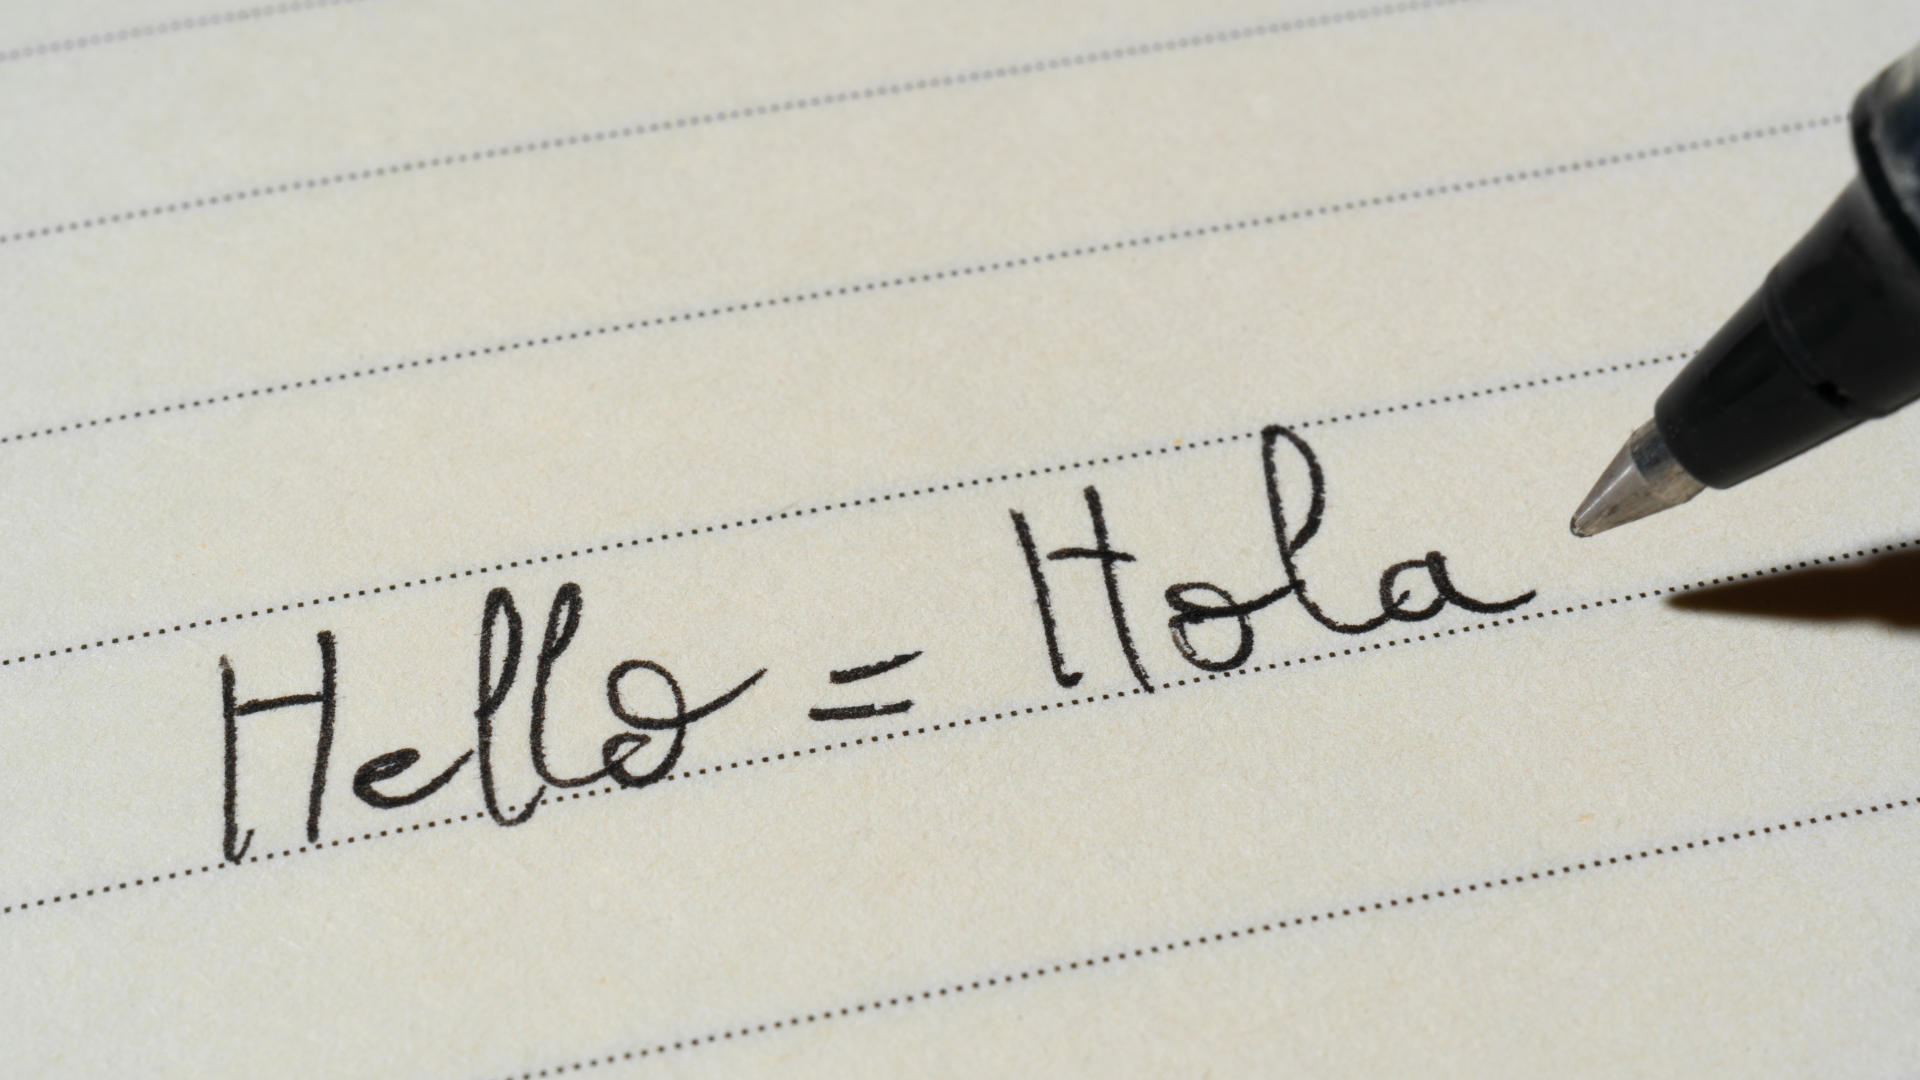 Hello = Hola